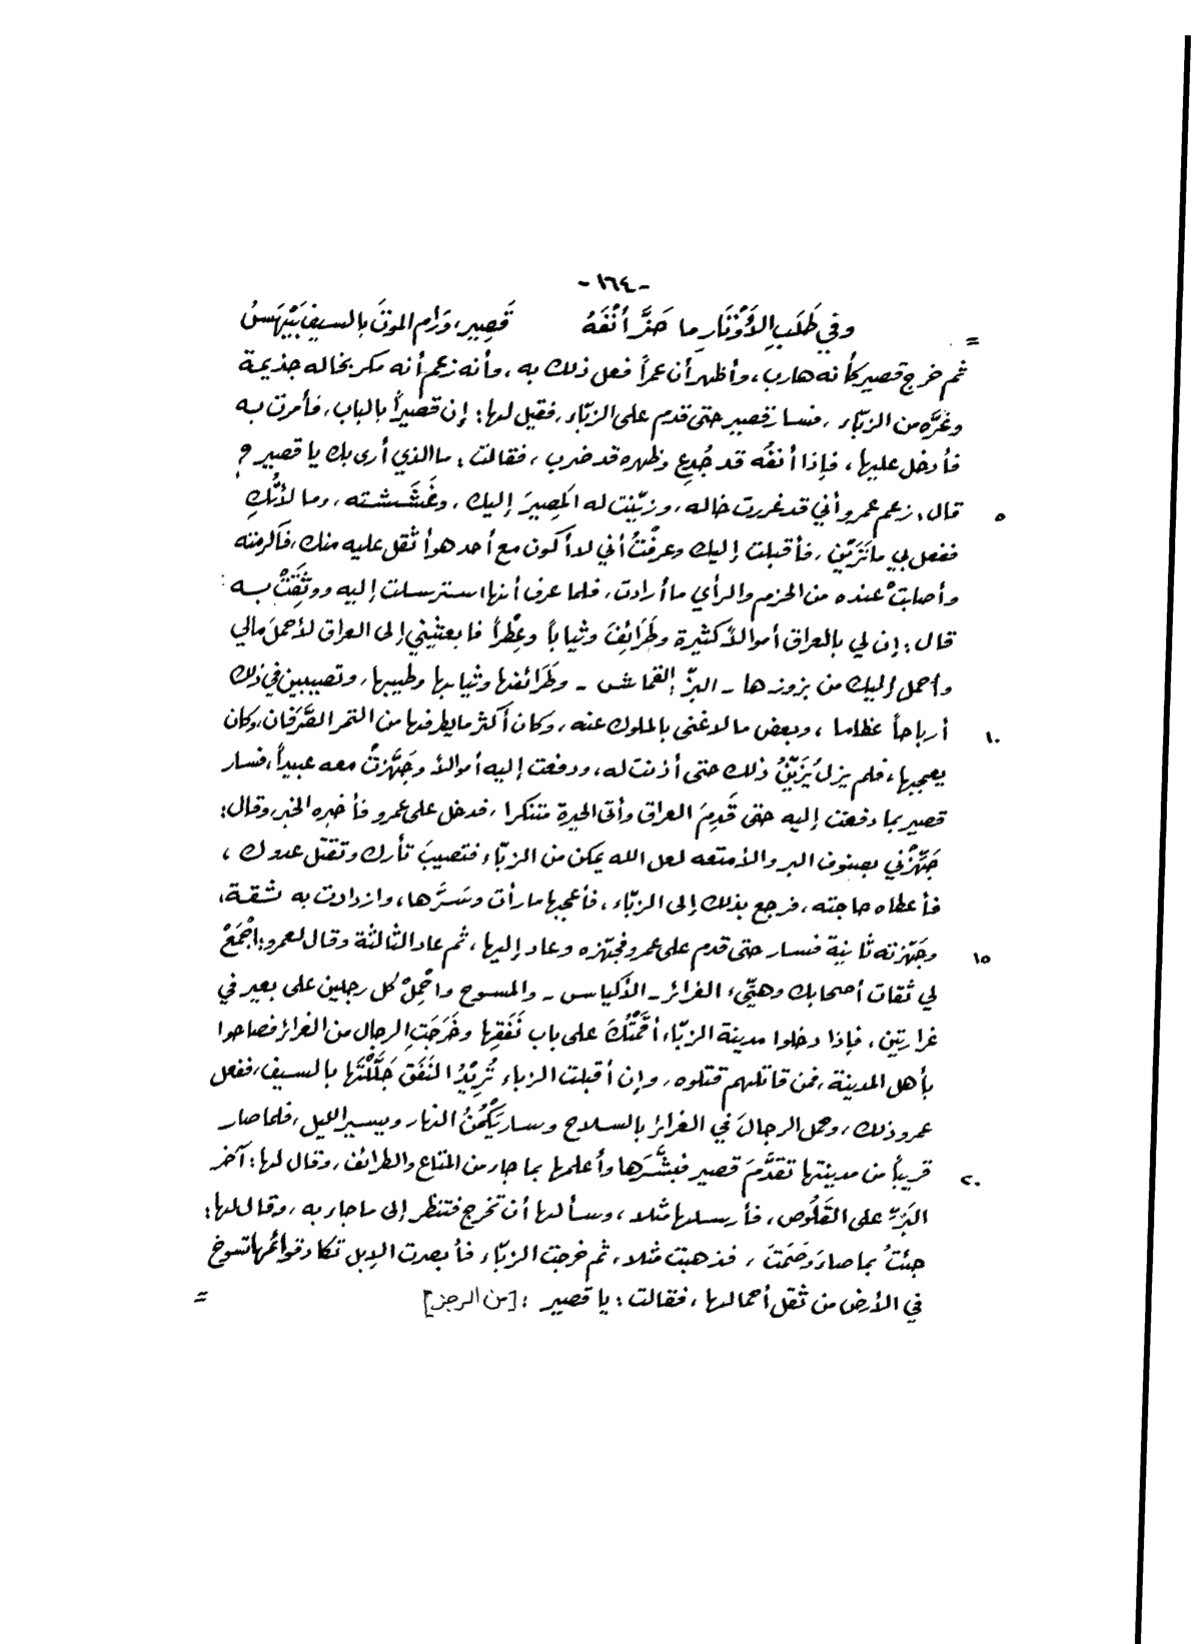 -١٦٤-
= وفي طَلَبِ الأَوْتَارِ ما حَزَّ أَنْفَهُ قَصِير، وَرَام الموتَ بالسيف بَيْهَسُ
ثم خرج قصير كأنه هارب، وأظهر أن عمراً فعل ذلك به، وأنه زعم أنه مكر بخاله جذيمة
وغَرَّه من الزبّاء، فسار قصير حتى قدم على الزبّاء، فقيل لها: إن قصيراً بالباب، فأمرت به
فأدخل عليها، فإذا أنفُه قد جُدِع وظهره قد ضرب، فقالت: ما الذي أرى بك يا قصير؟
٥ قال: زعم عمرو أني قد غررت خاله، وزيّنت له المصِيرَ إليك، وغَشَشته، ومالأتُكِ
ففعل بي ما تَرَيْنِ، فأقبلت إليك وعرفْتُ أني لا أكون مع أحد هو أثقل عليه منك، فأكرمته
وأصابتْ عنده من الحزم والرأي ما أرادت، فلما عرف أنها استرسلت إليه ووثِقَتْ به:
قال: إن لي بالعراق أموالاً كثيرة وطَرَائِفَ وثياباً وعِطْراً فابعثيني إلى العراق لأحملَ مالي
وأحمل إليك من بزوزها - البزّ القماش - وطَرَائفها وثيابها وطيبها، وتصيبين في ذلك
١٠ أرباحاً عظاما، وبعض ما لا غنى بالملوك عنه، وكان أكثر ما يطرفها من التمر الصَّرَفان، وكان
يعجبها، فلم يزل يُزَيِّنُ ذلك حتى أذنت له، ودفعت إليه أموالاً وجَهَّزتْ معه عبيداً، فسار
قصير بما دفعت إليه حتى قَدِمَ العراق وأتى الحيرة متنكرا، فدخل على عمرو فأخبره الخبر، وقال:
جَهِّزْني بصنوف البر والأمتعه لعل الله يمكن من الزبّاء فتصيبَ ثأرك وتقتل عدوك،
فأعطاه حاجته، فرجع بذلك إلى الزبّاء، فأعجبها ما رأت وسَرَّها، وازدادت به ثقة،
١٥ وجَهّزته ثانية فسار حتى قدم على عمرو فجهّزه وعاد إليها، ثم عاد الثالثة وقال لعمرو: اجْمَعْ
لي ثقات أصحابك وهَيِّيء الغرائر - الأكياس - والمسوح واحْمِلْ كل رجلين على بعير في
غرارتين، فإذا دخلوا مدينة الزبّاء أقَمْتُكَ على باب نَفَقِها وخَرَجَتِ الرجال من الغرائر فصاحوا
بأهل المدينة، فمن قاتلهم قتلوه، وإن أقبلت الزباء تُرِيْدُ النَفَق جَلَّلْتَها بالسيف، ففعل
عمرو ذلك، وحمل الرجالَ في الغرائر بالسلاح وسار يَكْمُنُ النهار ويسير الليل، فلما صار
٢٠ قريباً من مدينتها تقدَّمَ قصير فبشَّرَها وأعلمها بما جاء من المتاع والطرائف، وقال لها: آخر
البَزِّ على القَلُوص، فأرسلها مثلا، وسألها أن تخرج فتنظر إلى ما جاء به، وقال لها:
جئتُ بما صاءَ وصَمَتَ، فذهبت مثلا، ثم خرجت الزبّاء فأبصرت الإبل تكاد قوائمها تسوخ
في الأرض من ثقل أحمالها، فقالت: يا قصير: [من الرجز] =